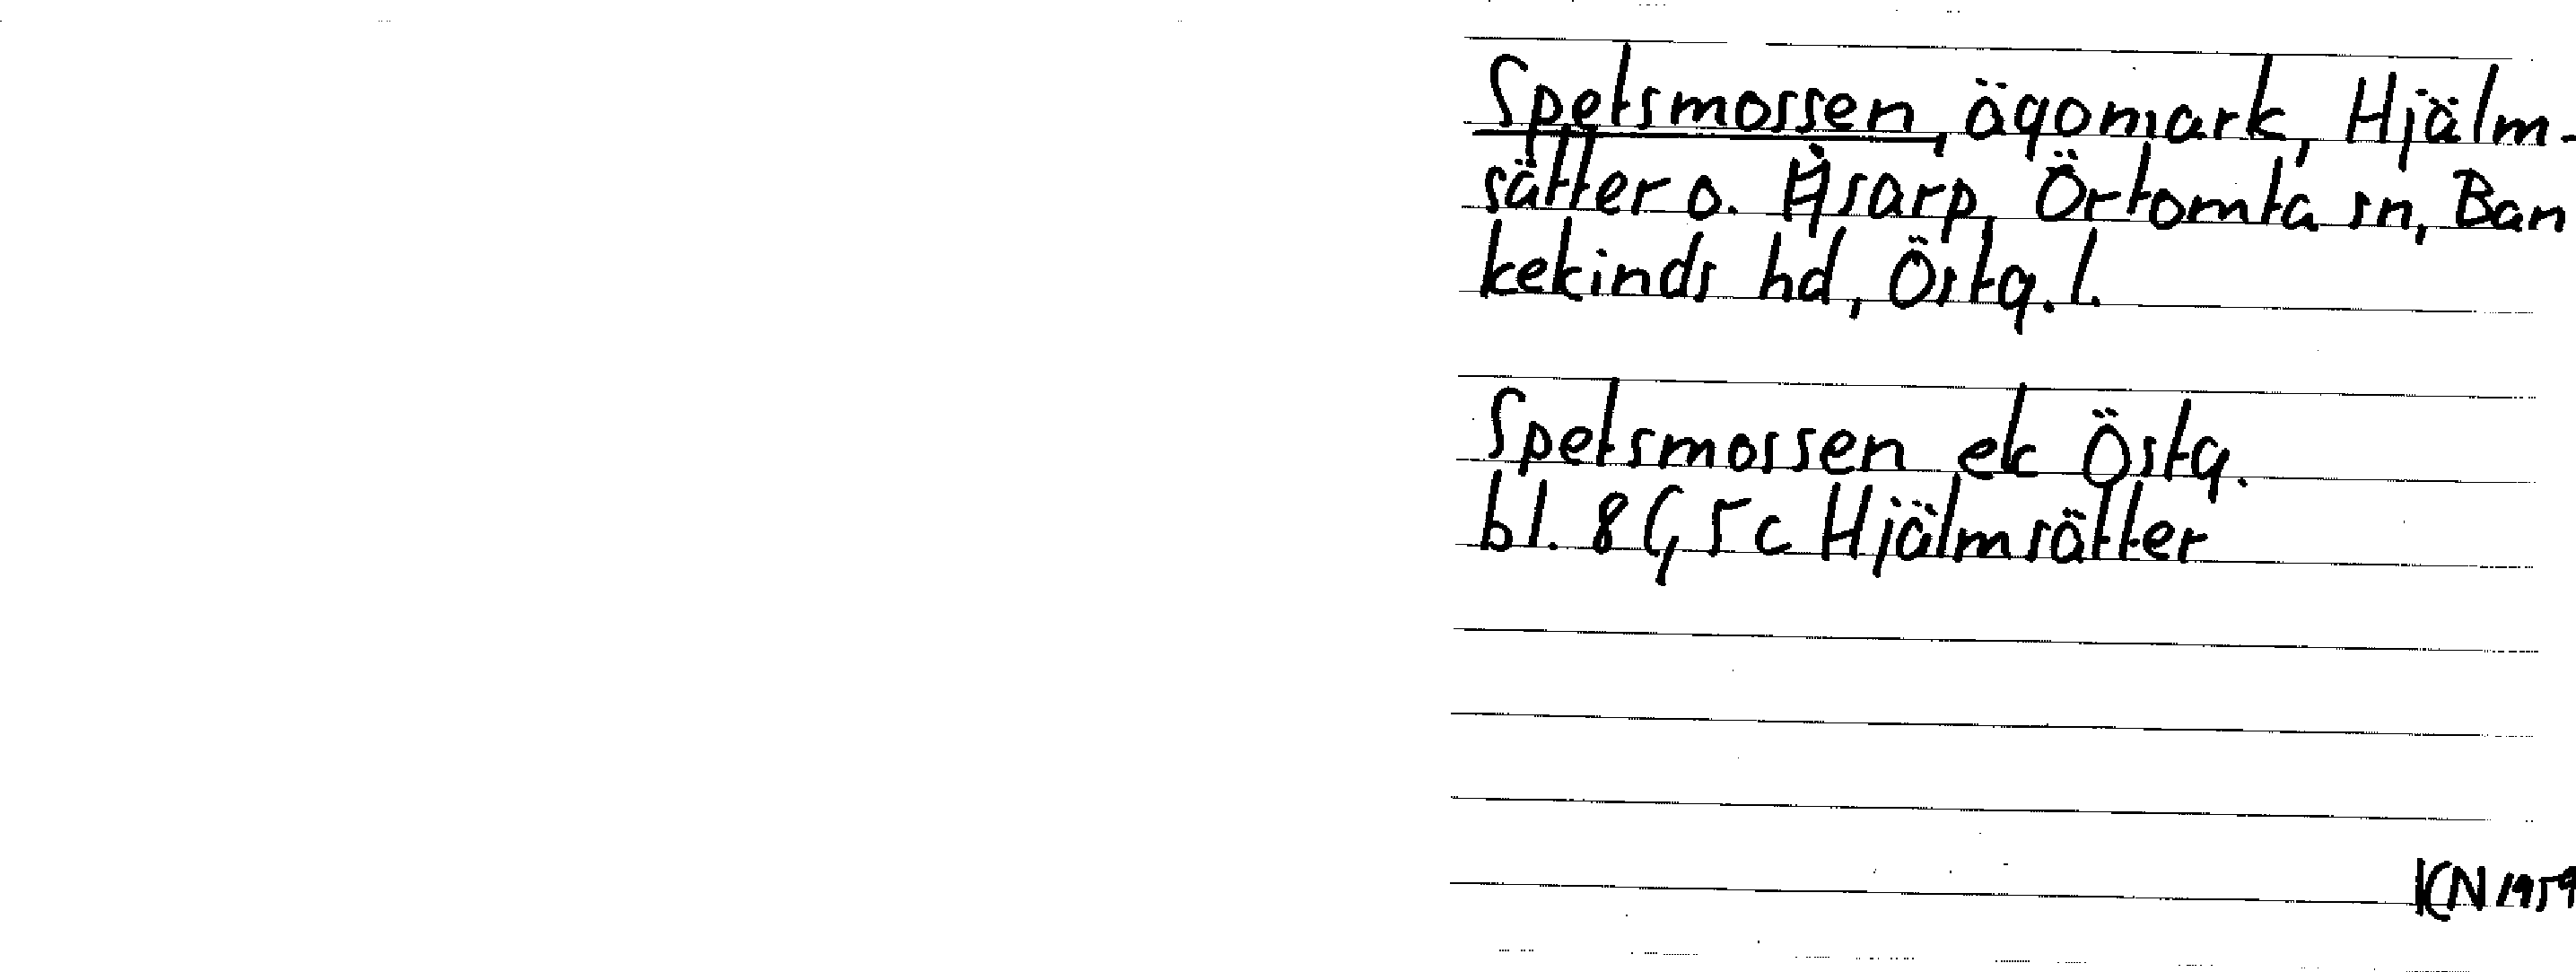 Spetsmossen, ägomark, Hjälm-
sätter o. Åsarp, Örtomta sn, Ban
kekinds hd, Östg. l.
Spetsmossen ek Östg.
bl. 8G, 5c Hjälmsätter
KN 1959